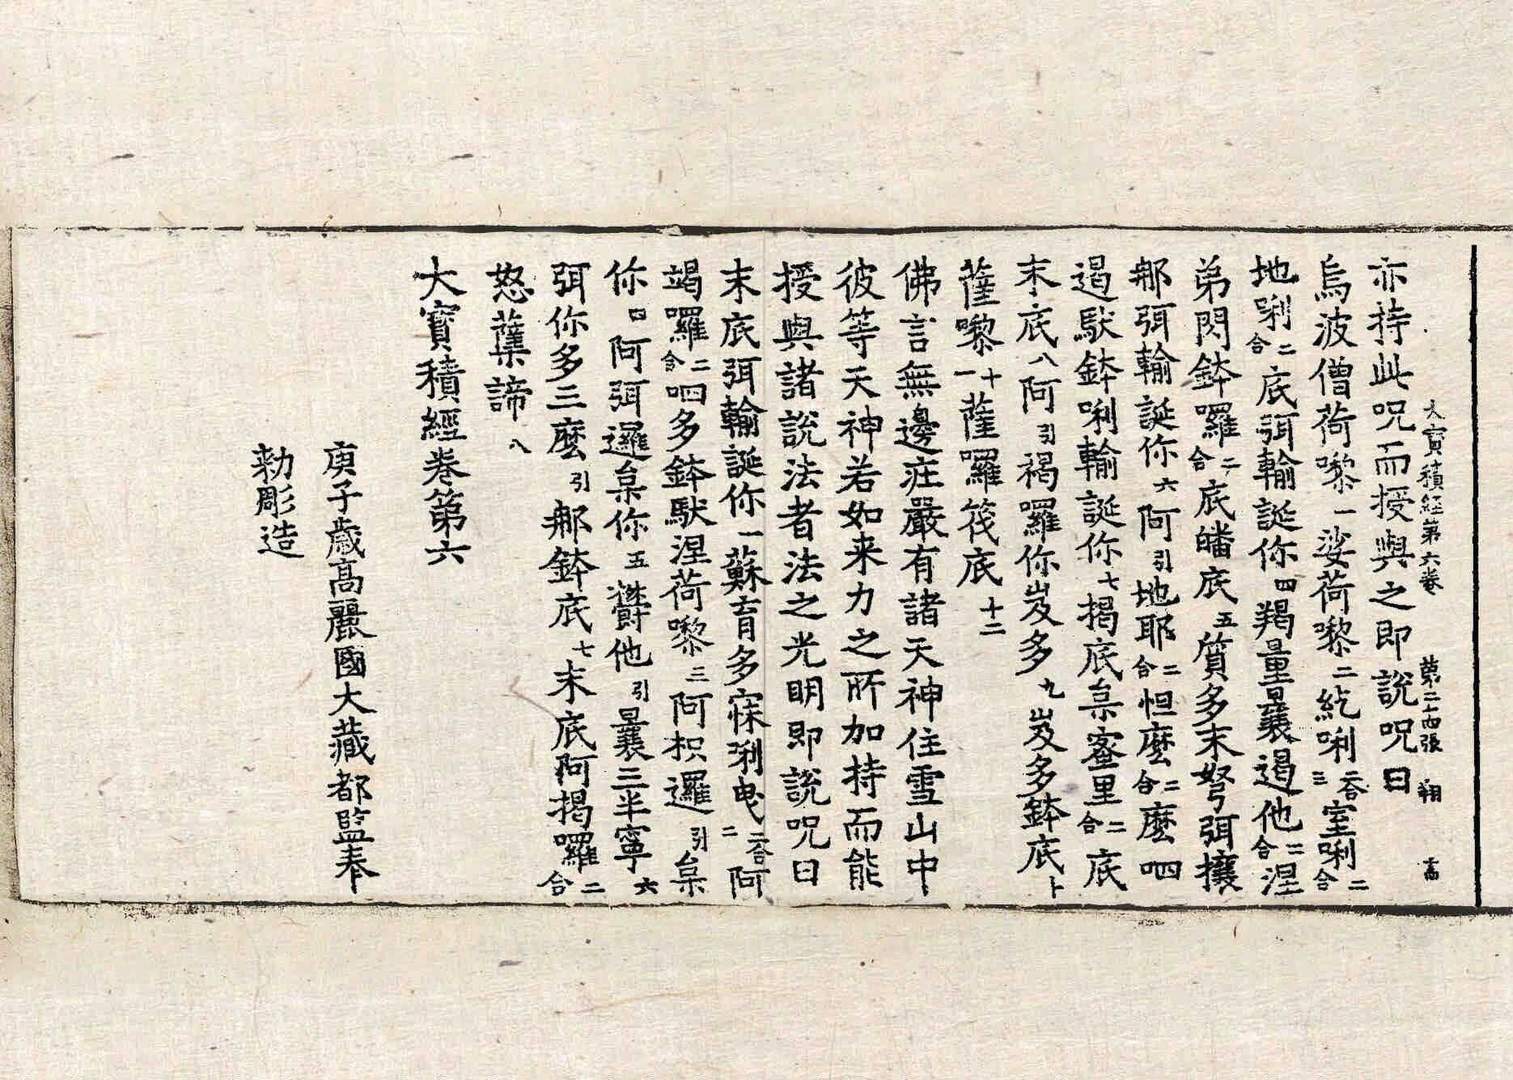 大寶積經第六卷 第二十四張 翔
亦持此呪而授與之即說呪曰
烏波僧荷嚟一娑荷嚟二紇唎二合三室唎二合
地唎二合底弭輸誕你四羯量曩遏他二合涅
弟閃鉢囉二合底皤底五質多末弩弭攘
那弭輸誕你六阿引地耶二合怛麽二合麽呬
遏馱鉢唎輸誕你七揭底枲蜜里二合底
末底八阿引褐囉你岌多九岌多鉢底十
薩嚟十一薩囉筏底十二
佛言無邊莊嚴有諸天神住雪山中
彼等天神若如来力之所加持而能
授與諸說法者法之光明即說呪曰
末底弭輸誕你一蘇育多寐唎曳二合二阿
竭囉二合呬多鉢馱涅荷嚟三阿枳邏引枲
你四阿弭邏枲你五欝他引曩三半寧六
弭你多三麽引那鉢底七末底阿揭囉二合
怒蘖諦八
大寶積經卷第六
庚子歲高麗國大藏都監奉
勅彫造